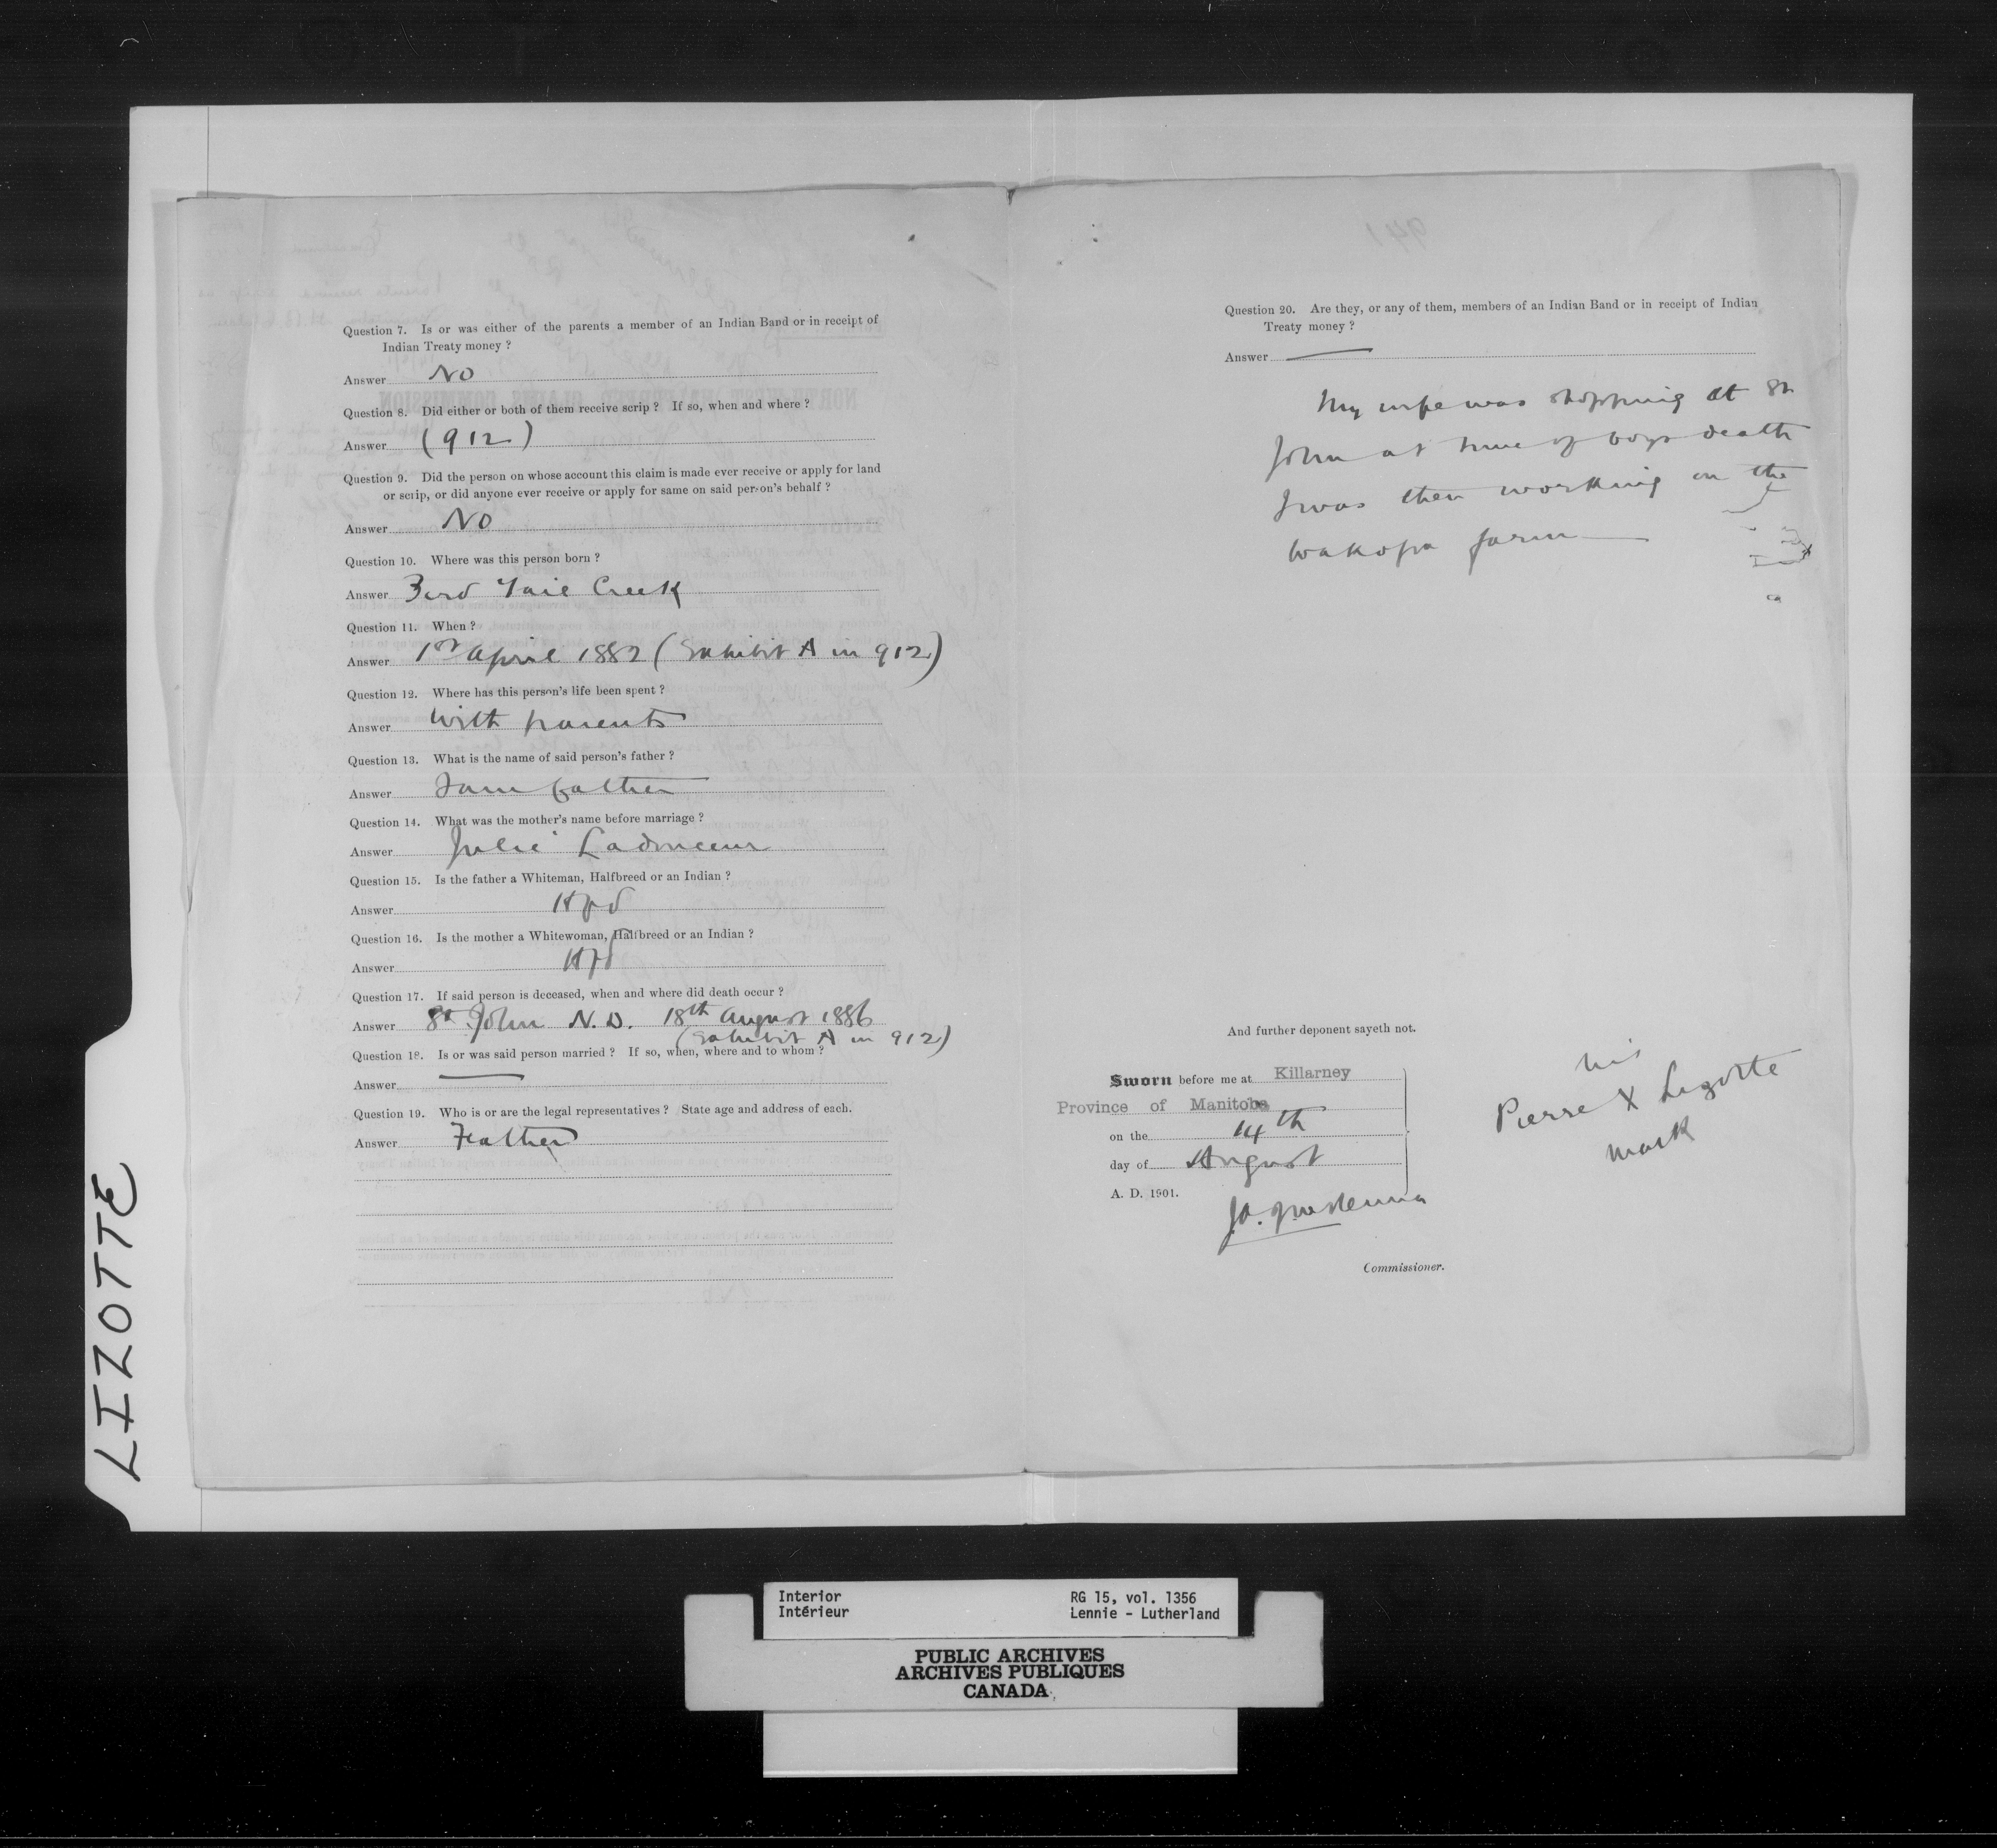 Question 7. Is or was either of the parents a member of an Indian Band or in receipt of
Indian Treaty money ?
Answer No
Question 8. Did either or both of them receive scrip ? If so, when and where ?
Answer (912)
Question 9. Did the person on whose account this claim is made ever receive or apply for land
or scrip, or did anyone ever receive or apply for same on said person's behalf ?
Answer No
Question 10. Where was this person born ?
Answer Bird Tail Creek
Question 11. When ?
Answer 1st April 1882 (Exhibit A in 912)
Question 12. Where has this person's life been spent ?
Answer With parents
Question 13. What is the name of said person's father ?
Answer I am father
Question 14. What was the mother's name before marriage ?
Answer Julie Ladouceur
Question 15. Is the father a Whiteman, Halfbreed or an Indian ?
Answer Hfd
Question 16. Is the mother a Whitewoman, Halfbreed or an Indian ?
Answer Hfd
Question 17. If said person is deceased, when and where did death occur ?
Answer St. John N.D. 18th August 1886
(Exhibit A in 912)
Question 18. Is or was said person married ? If so, when, where and to whom ?
Answer
Question 19. Who is or are the legal representatives ? State age and address of each.
Answer Father
Question 20. Are they, or any of them, members of an Indian Band or in receipt of Indian
Treaty money ?
Answer
My wife was stopping at St.
John at time of boys death
I was then working on the
Wakopa farm
And further deponent sayeth not.
Sworn before me at Killarney
Province of Manitoba
on the 14th
day of August
A. D. 1901.
Commissioner.
his
Pierre X Lizotte
mark
LIZOTTE
Interior
Intérieur
RG 15, vol. 1356
Lennie - Lutherland
PUBLIC ARCHIVES
ARCHIVES PUBLIQUES
CANADA